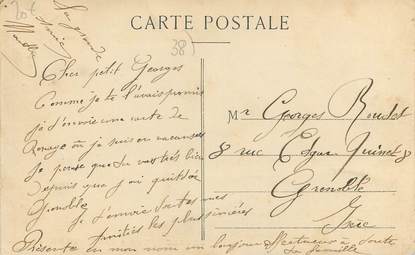 La grande
amie
CARTE POSTALE
38
Cher petit Georges
Comme je te l'avais promis
je t'envoie une carte de
où je suis en vacances
Je pense que tu vas très bien
depuis que j'ai quitté
Grenoble. Je t'envoie toutes mes
amitiés les plus sincères
Présente en mon nom un bonjour affectueux à toute
la famille
Mr Georges
8 rue Edgar Quinet 8
Grenoble
Isère